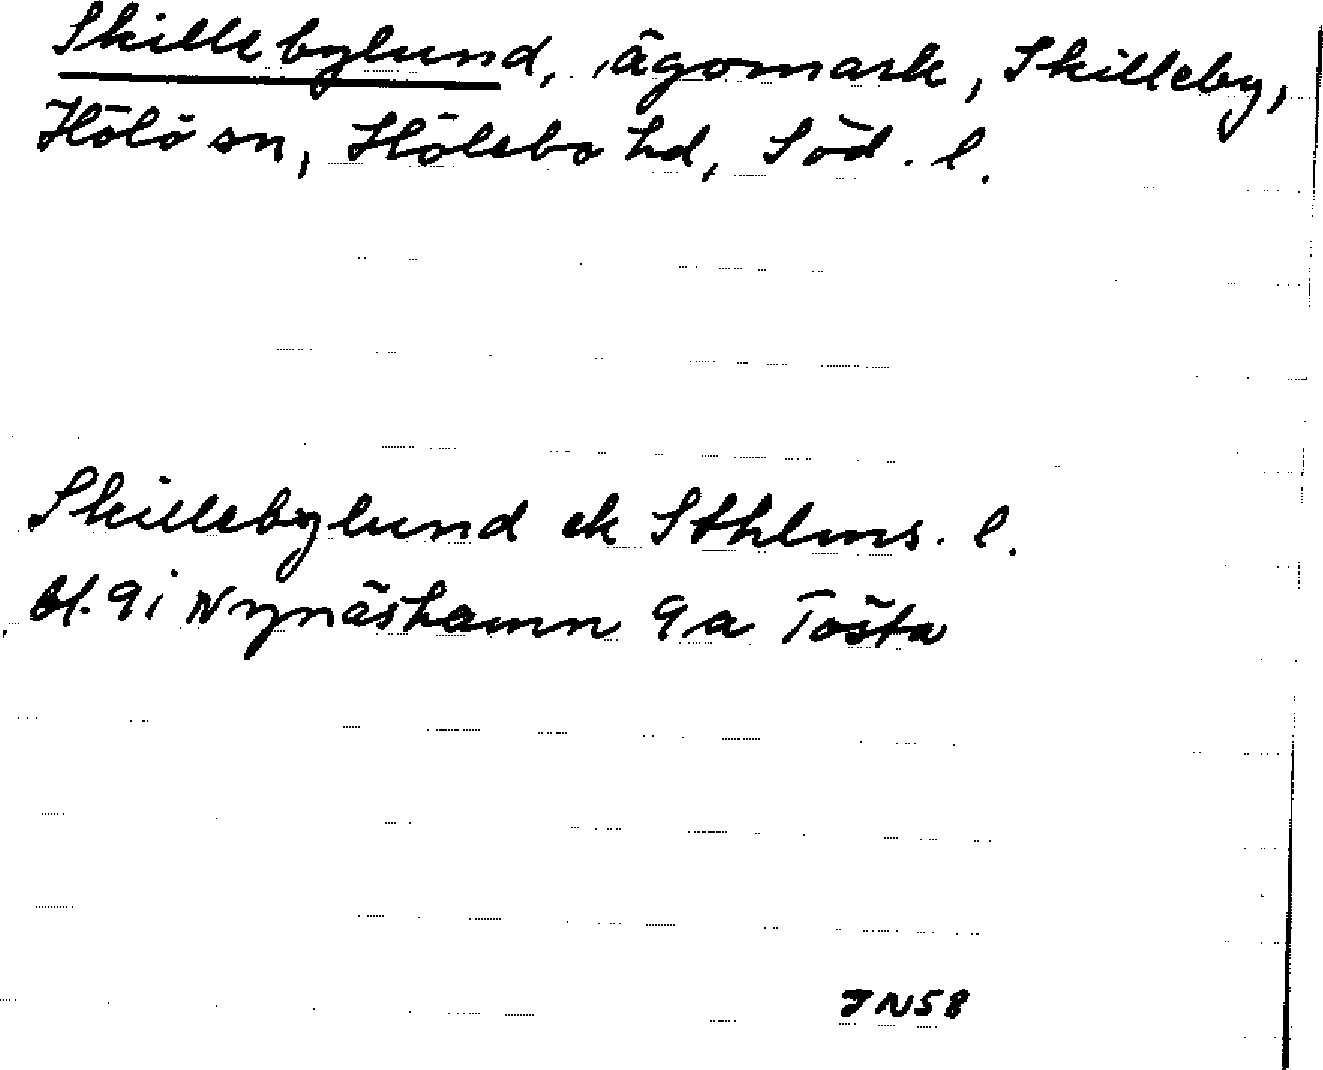 Skillebylund, ägomark, Skilleby,
Hölö sn, Hölebo hd, Söd. l.
Skillebylund ek Sthlms. l.
bl. 9i Nynäshamn 9a Tösta
JN58